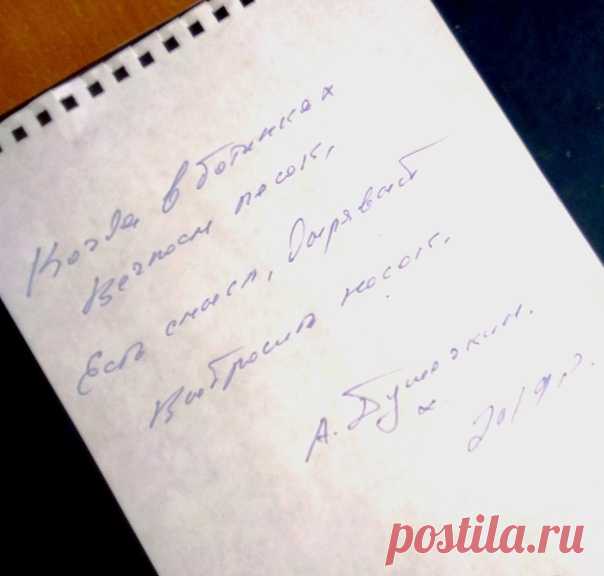 Когда в ботинках
Вечном песок,
Есть смысл, дырявый
Выбросить носок.
А. Бумочкин.
2019 г.
postila.ru